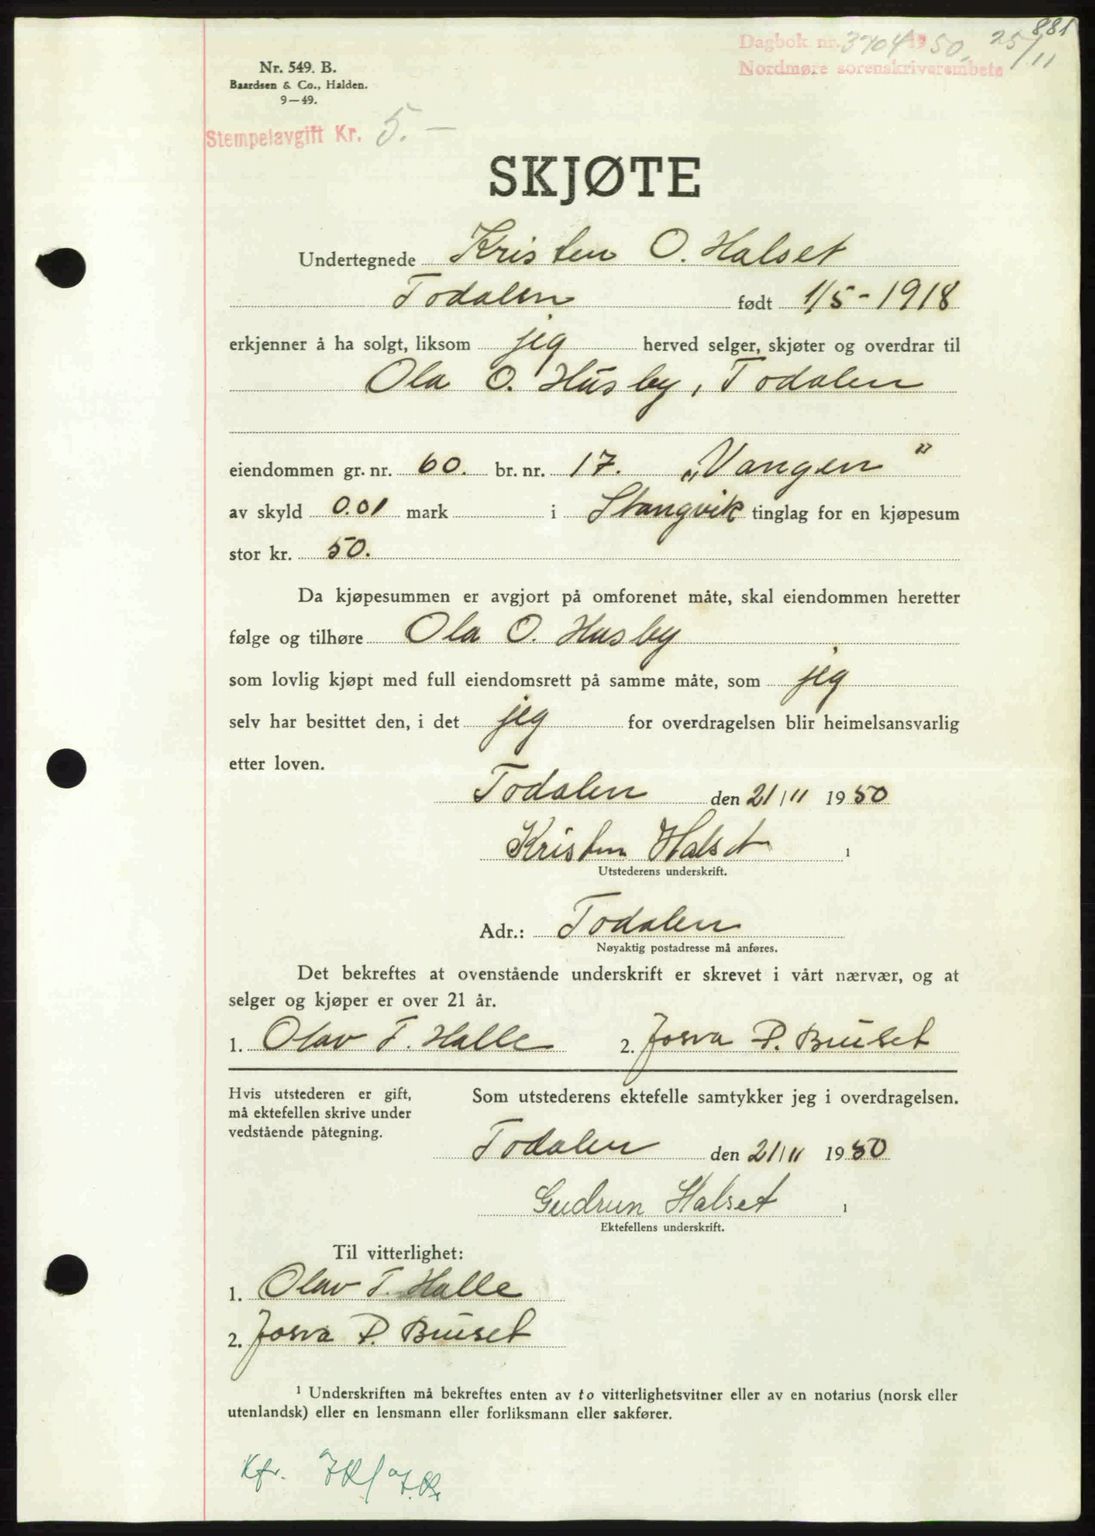 881
Dagbok nr. 3704 1950, 25/11
Nordmøre sorenskriverembete
Nr. 549. B.
Baardsen & Co., Halden.
9—49.
Stempelavgift Kr. 5.—
SKJØTE
Undertegnede Kristen O. Halset
Todalen født 1/5-1918
erkjenner å ha solgt, liksom jeg herved selger, skjøter og overdrar til
Ola O. Husby, Todalen
eiendommen gr. nr. 60. br. nr. 17. „Vangen"
av skyld 0.01 mark i Stangvik tinglag for en kjøpesum
stor kr. 50.
Da kjøpesummen er avgjort på omforenet måte, skal eiendommen heretter
følge og tilhøre Ola O. Husby
som lovlig kjøpt med full eiendomsrett på samme måte, som jeg
selv har besittet den, i det jeg for overdragelsen blir heimelsansvarlig
etter loven.
Todalen den 21/11 1950
Kristen Halset 1
Utstederens underskrift.
Adr.: Todalen
Nøyaktig postadresse må anføres.
Det bekreftes at ovenstående underskrift er skrevet i vårt nærvær, og at
selger og kjøper er over 21 år.
1. Olav T. Halle 2. Josva P. Bruset
Hvis utstederen er gift,
må ektefellen skrive under
vedstående påtegning.
Som utstederens ektefelle samtykker jeg i overdragelsen.
Todalen den 21/11 1950
Gudrun Halset 1
Ektefellens underskrift.
Til vitterlighet:
1. Olav T. Halle
2. Josva P. Bruset
1 Underskriften må bekreftes enten av to vitterlighetsvitner eller av en notarius (norsk eller
utenlandsk) eller en lensmann eller forliksmann eller sakfører.
Kfr.